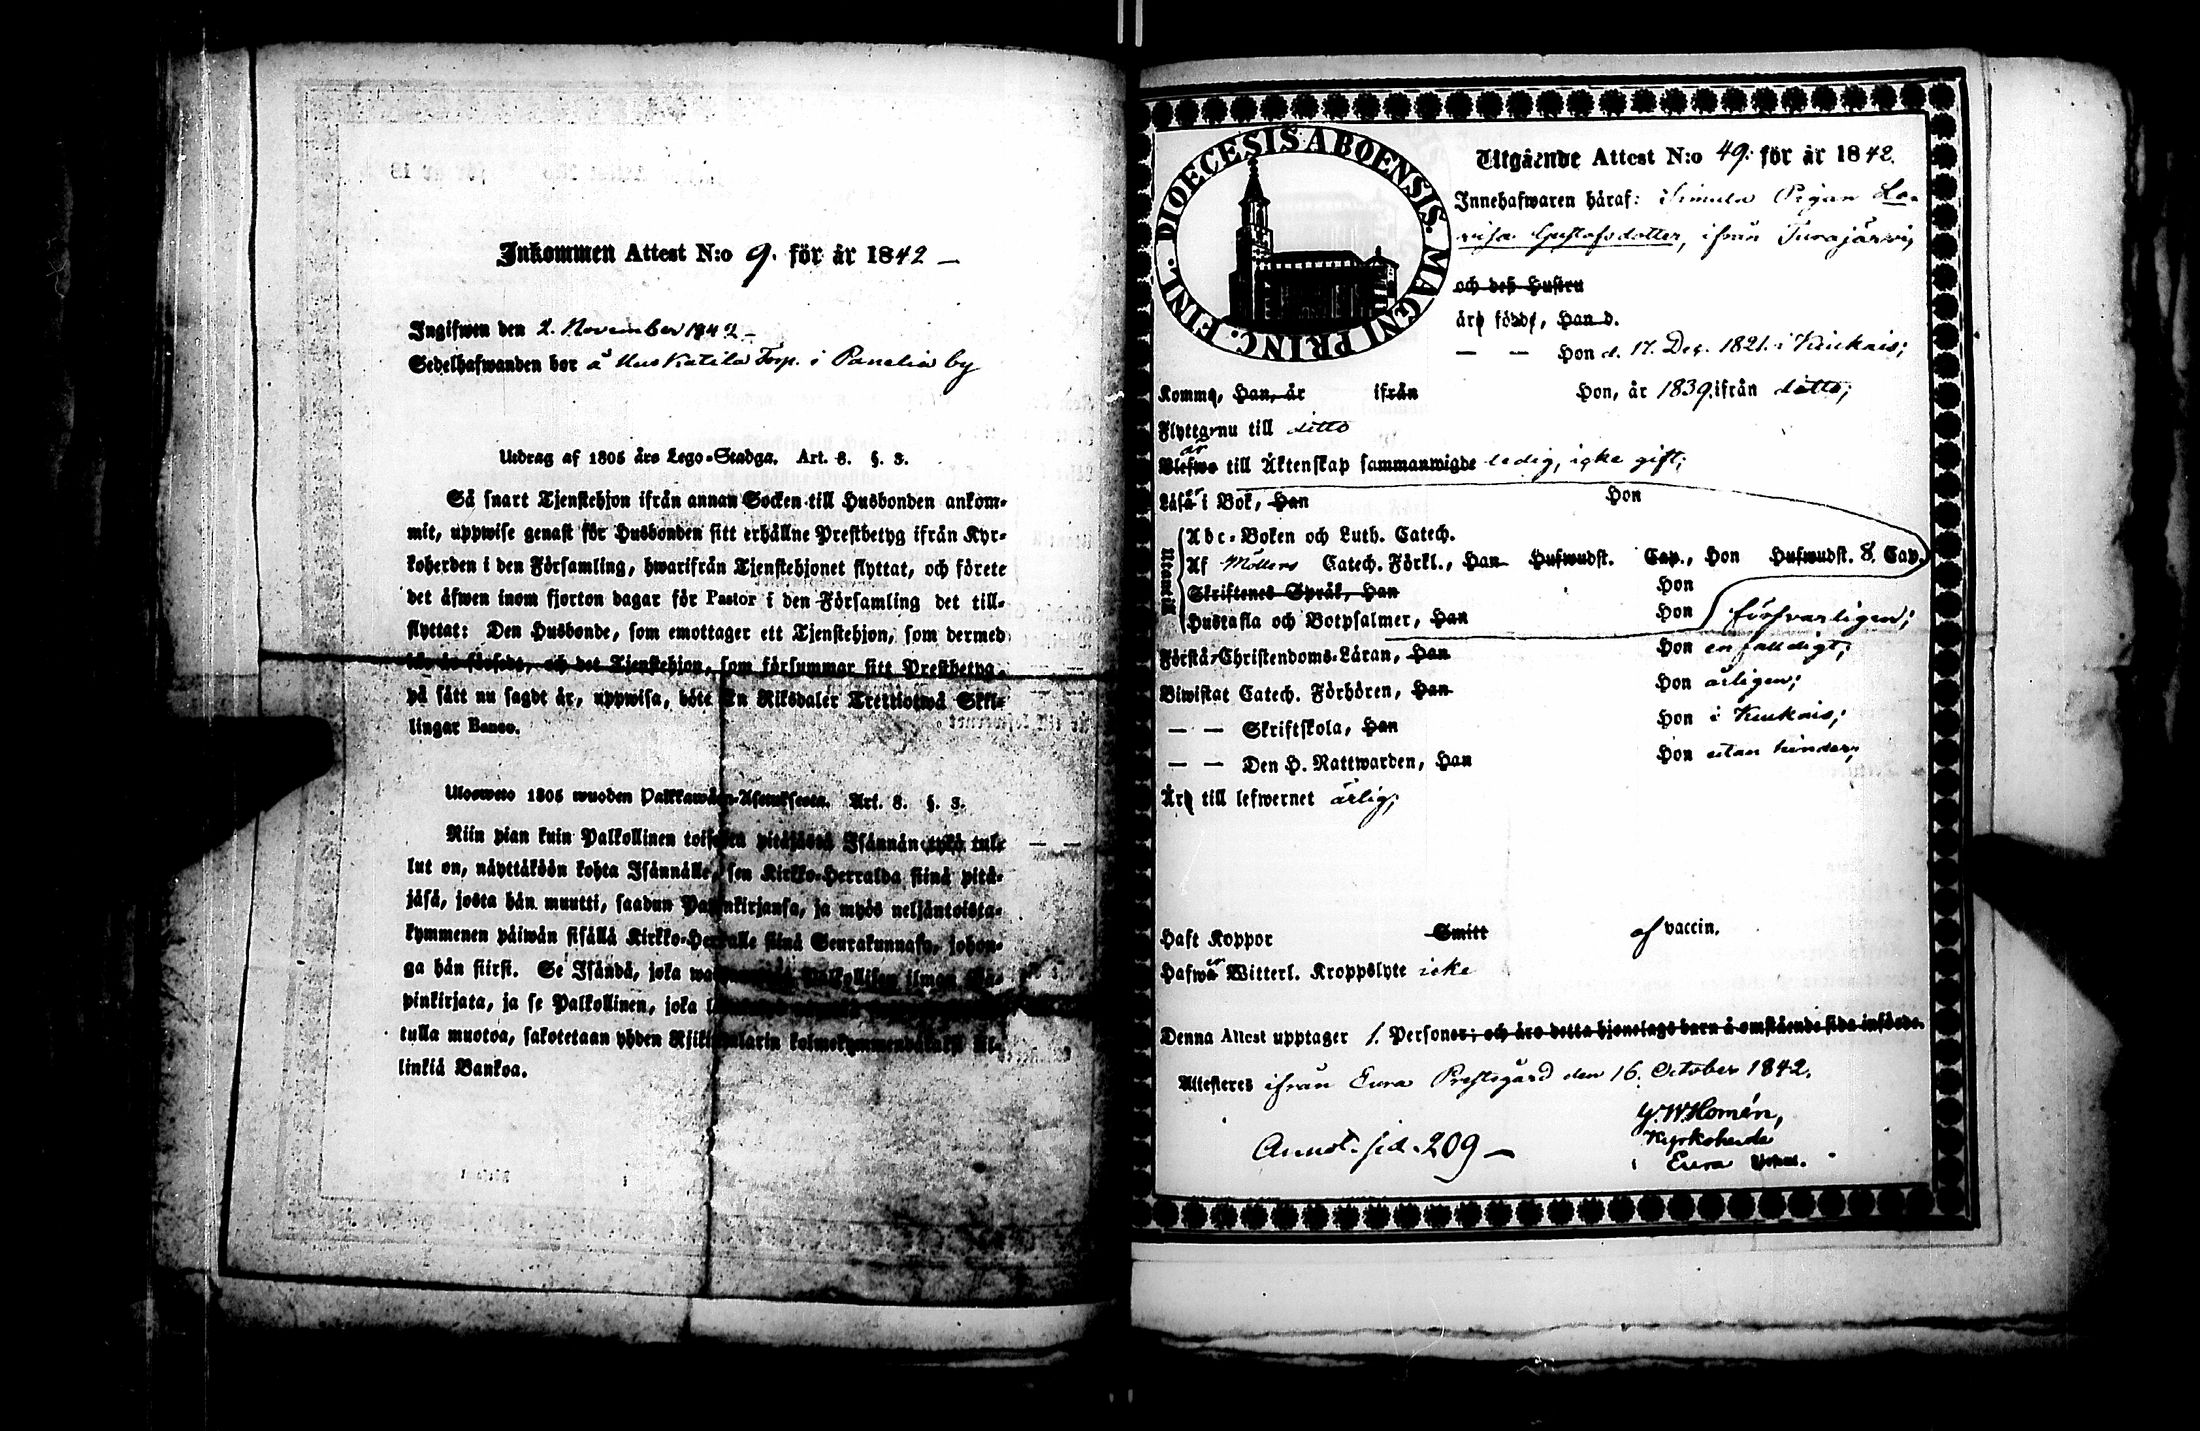 Inkommen Attest N:o 9. för år 1842 —
Ingifwen den 2. November 1842 —
Sedelhafwanden bor å Uuskatila Torp. i Panelia by
Utdrag af 1805 års Lego-Stadga. Art. 8. §. 3.
Så snart Tjenstehjon ifrån annan Socken till Husbonden ankom-
mit, uppwise genast för Husbonden sitt erhållne Prestbetyg ifrån Kyr-
koherden i den Församling, hwarifrån Tjenstehjonet flyttat, och förete
det äfwen inom fjorton dagar för Pastor i den Församling det till-
flyttat: Den Husbonde, som emottager ett Tjenstehjon, som dermed
och det Tjenstehjon, som försummar sitt Prestbetyg,
på sätt nu sagdt är, uppwisa, böte En Riksdaler Trettiotwå Skil-
lingar Banco.
Ulosweto 1805 wuoden Palkkawäen-Asetuksesta. Art. 8. §. 3.
Niin pian kuin Palkollinen toisesta pitäjästä Isännän tykö tul-
lut on, näyttäköön kohta Isännälle, sen Kirkko-Herralda siinä pitä-
jäsä, josta hän muutti, saadun Papinkirjansa, ja myös neljäntoista-
kymmenen päiwän sisällä Kirkko-Herralle siinä Seurakunnasa, johon-
ga hän siirsi. Se Isändä, joka Palkollisen ilman Pa-
pinkirjata, ja se Palkollinen, joka
tulla muotoa, sakotetaan yhden Rijkintalarin kolmekymmendäkaksi Kil-
linkiä Bankoa.
DIOECESIS ABOENSIS. MAGNI PRINC. FINL.
Utgående Attest N:o 49. för år 1842.
Innehafwaren häraf: Simula Pigan Lo-
visa Gustafsdotter, ifrån Turajärvi,
och deß Hustru
äro födde, Han d.
— — Hon d. 17. Dec. 1821. i Kiukais;
Komme, Han, år ifrån Hon, år 1839. ifrån ditto;
Flytta nu till ditto
är
Blefwo till Äktenskap sammanwigde ledig, icke gift;
Läsa i Bok, Han Hon
Utantill
Abc-Boken och Luth. Catech.
Af Möllers Catech. Förkl., Han Hufwudst. Cap., Hon Hufwudst. 8. Cap.
Skriftenes Språk, Han Hon
Hustafla och Botpsalmer, Han Hon försvarligen;
Förstå Christendoms-Läran, Han Hon enfalldigt;
Biwistat Catech. Förhören, Han Hon ärligen;
— — Skriftskola, Han Hon i Kiukais;
— — Den H. Nattwarden, Han Hon utan hinder;
Äro till lefwernet ärlig;
Haft Koppor Smitt af vaccin.
Hafwa Witterl. Kroppslyte icke
Denna Attest upptager 1. Personer; och äro detta hjonelags barn å omstående sida införde.
Attesteres ifrån Eura Prestgård den 16. October 1842.
G. W. Homén,
Kyrkoherde
i Eura
Annot. sid. 209 —